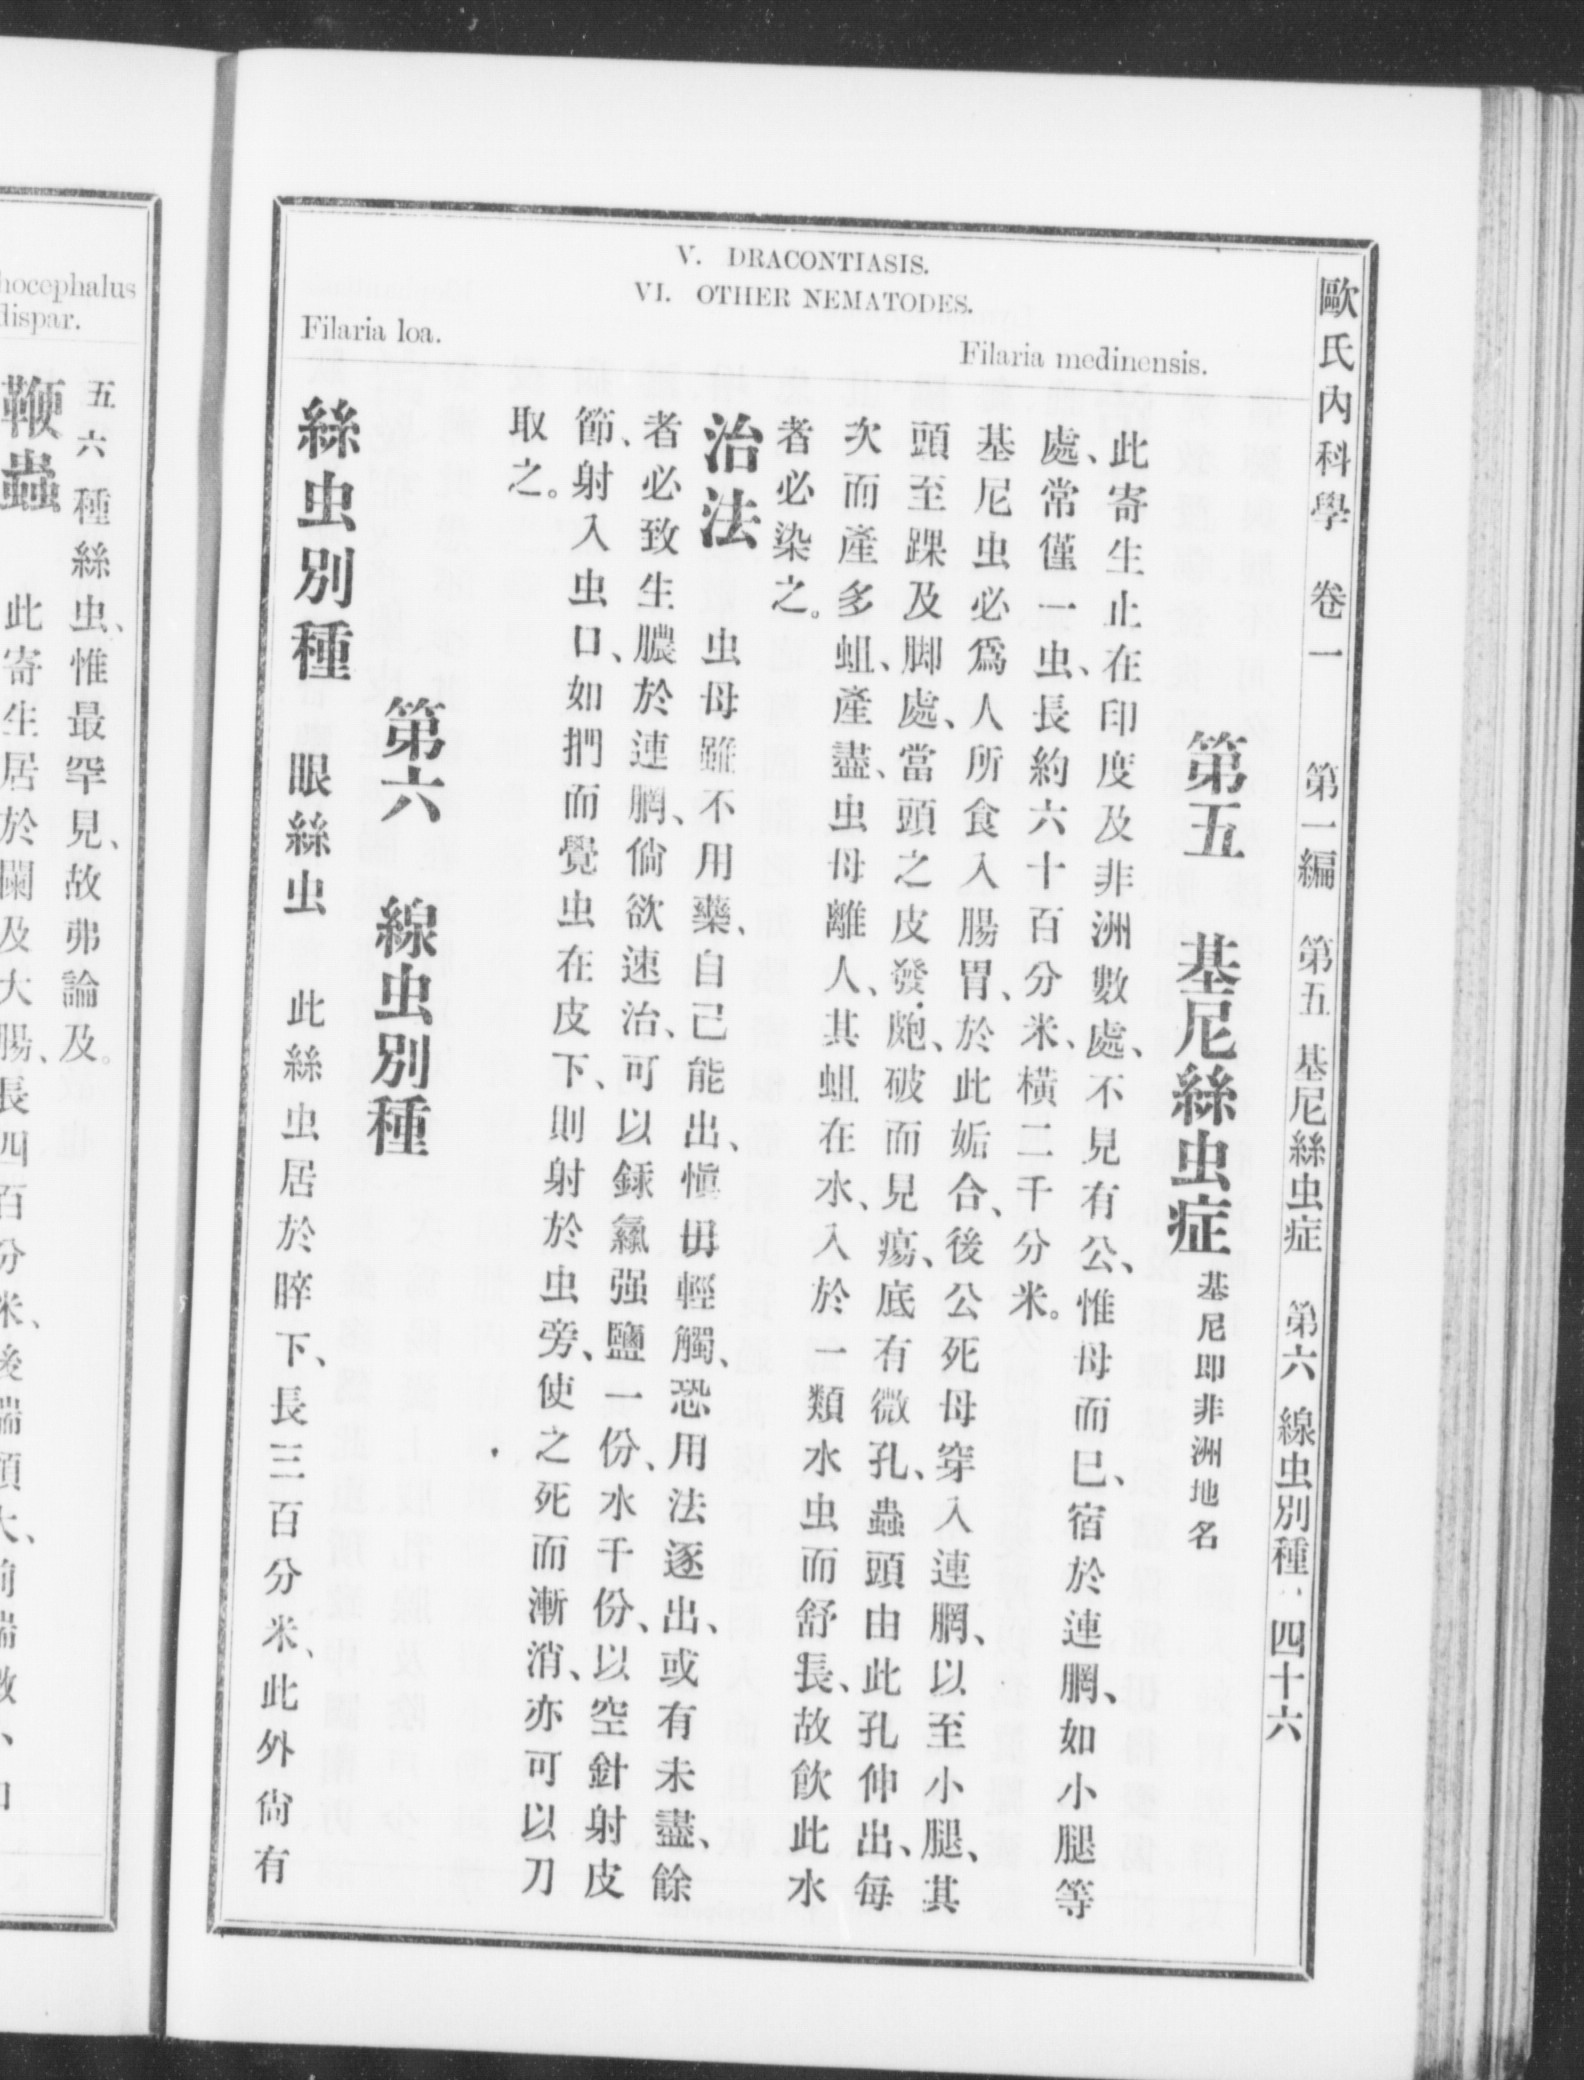 歐氏內科學　卷一　第一編　第五　基尼絲虫症　第六　線虫別種　四十六
V. DRACONTIASIS.
VI. OTHER NEMATODES.
Filaria medinensis.
Filaria loa.
第五　基尼絲虫症　基尼即非洲地名
此寄生止在印度及非洲數處、不見有公、惟母而已、宿於連膶、如小腿等
處、常僅一虫、長約六十百分米、橫二千分米。
基尼虫必爲人所食入腸胃、於此姤合、後公死母穿入連膶、以至小腿、其
頭至踝及脚處、當頭之皮發皰、破而見瘍、底有微孔、蟲頭由此孔伸出、每
次而產多蛆、產盡、虫母離人、其蛆在水、入於一類水虫而舒長、故飲此水
者必染之。
治法　虫母雖不用藥、自己能出、愼毋輕觸、恐用法逐出、或有未盡、餘
者必致生膿於連膶、倘欲速治、可以銾綠强鹽一份、水千份、以空針射皮
節、射入虫口、如捫而覺虫在皮下、則射於虫旁、使之死而漸消、亦可以刀
取之。
第六　線虫別種
絲虫別種　眼絲虫　此絲虫居於睟下、長三百分米、此外尙有
hocephalus
dispar.
五六種絲虫、惟最罕見、故弗論及。
鞭蟲　此寄生居於闌及大腸、長四百分米、後端頂大、前端